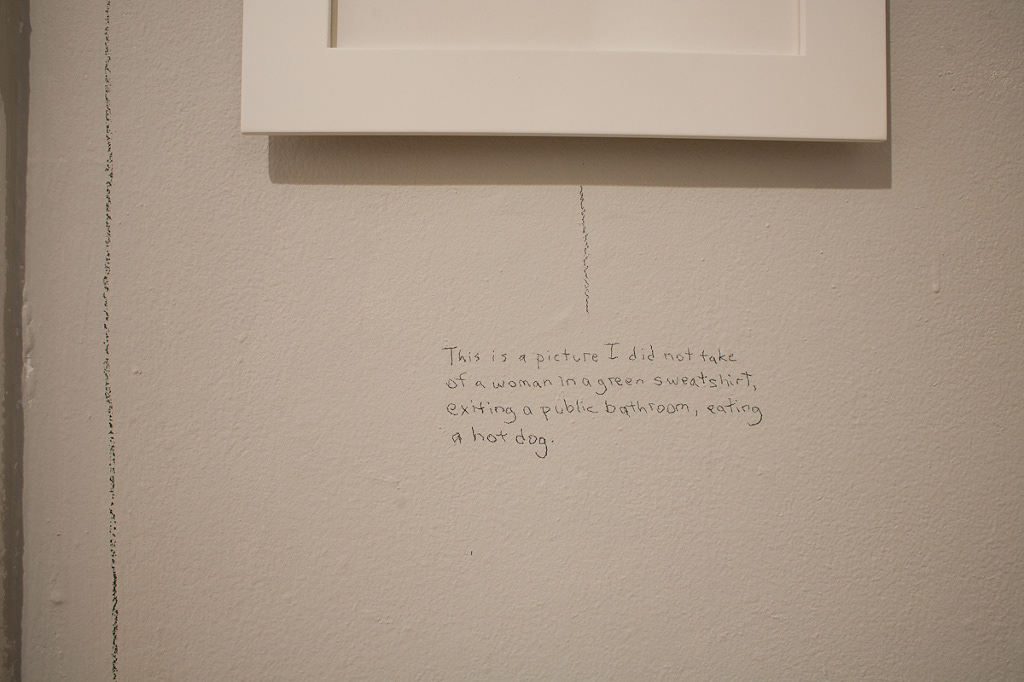 This is a picture I did not take
of a woman in a green sweatshirt,
exiting a public bathroom, eating
a hot dog.